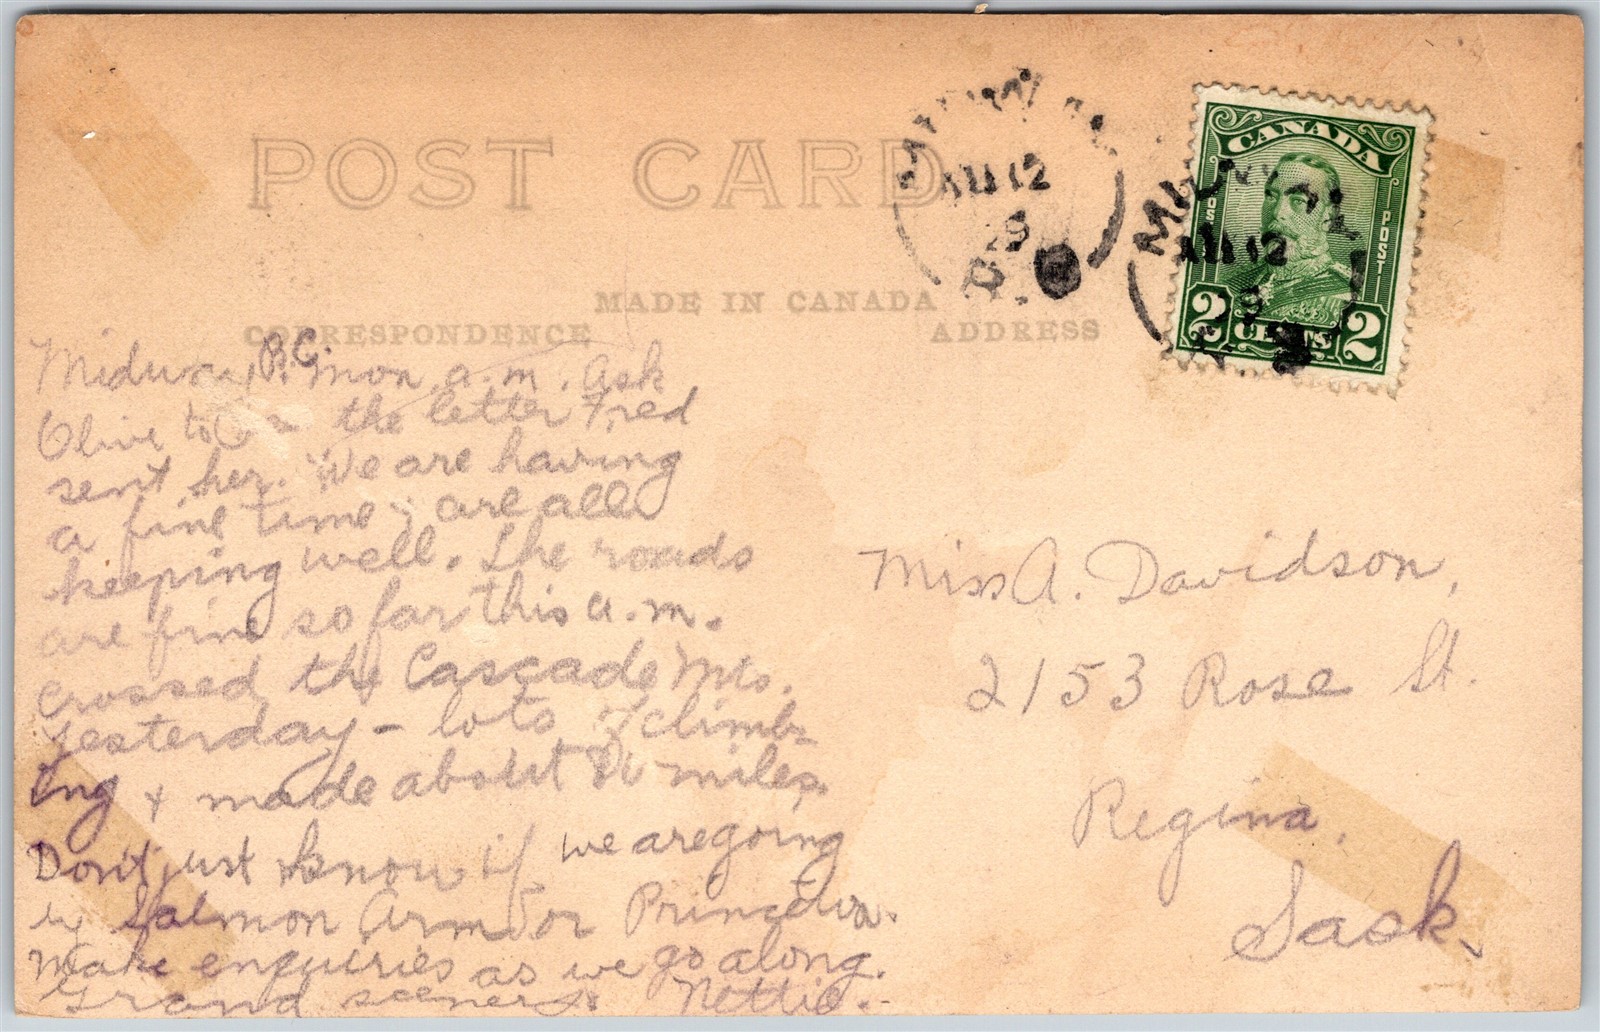 POST CARD
MADE IN CANADA
CORRESPONDENCE
ADDRESS
AU 12
29
AU 12
CANADA
POST
2 CENTS 2
Midway B.C. mon. a.m. Ask
Olive to the letter Fred
sent her. We are having
a fine time & are all
keeping well. The roads
are fine so far this a.m.
Crossed the Cascade Mts.
yesterday - lots of climb-
ing & made about miles.
Don't just know if we are going
by Salmon Arm or Princeton.
Make enquiries as we go along.
Grand scenery. Nettie.
Miss A. Davidson,
2153 Rose St.
Regina,
Sask.